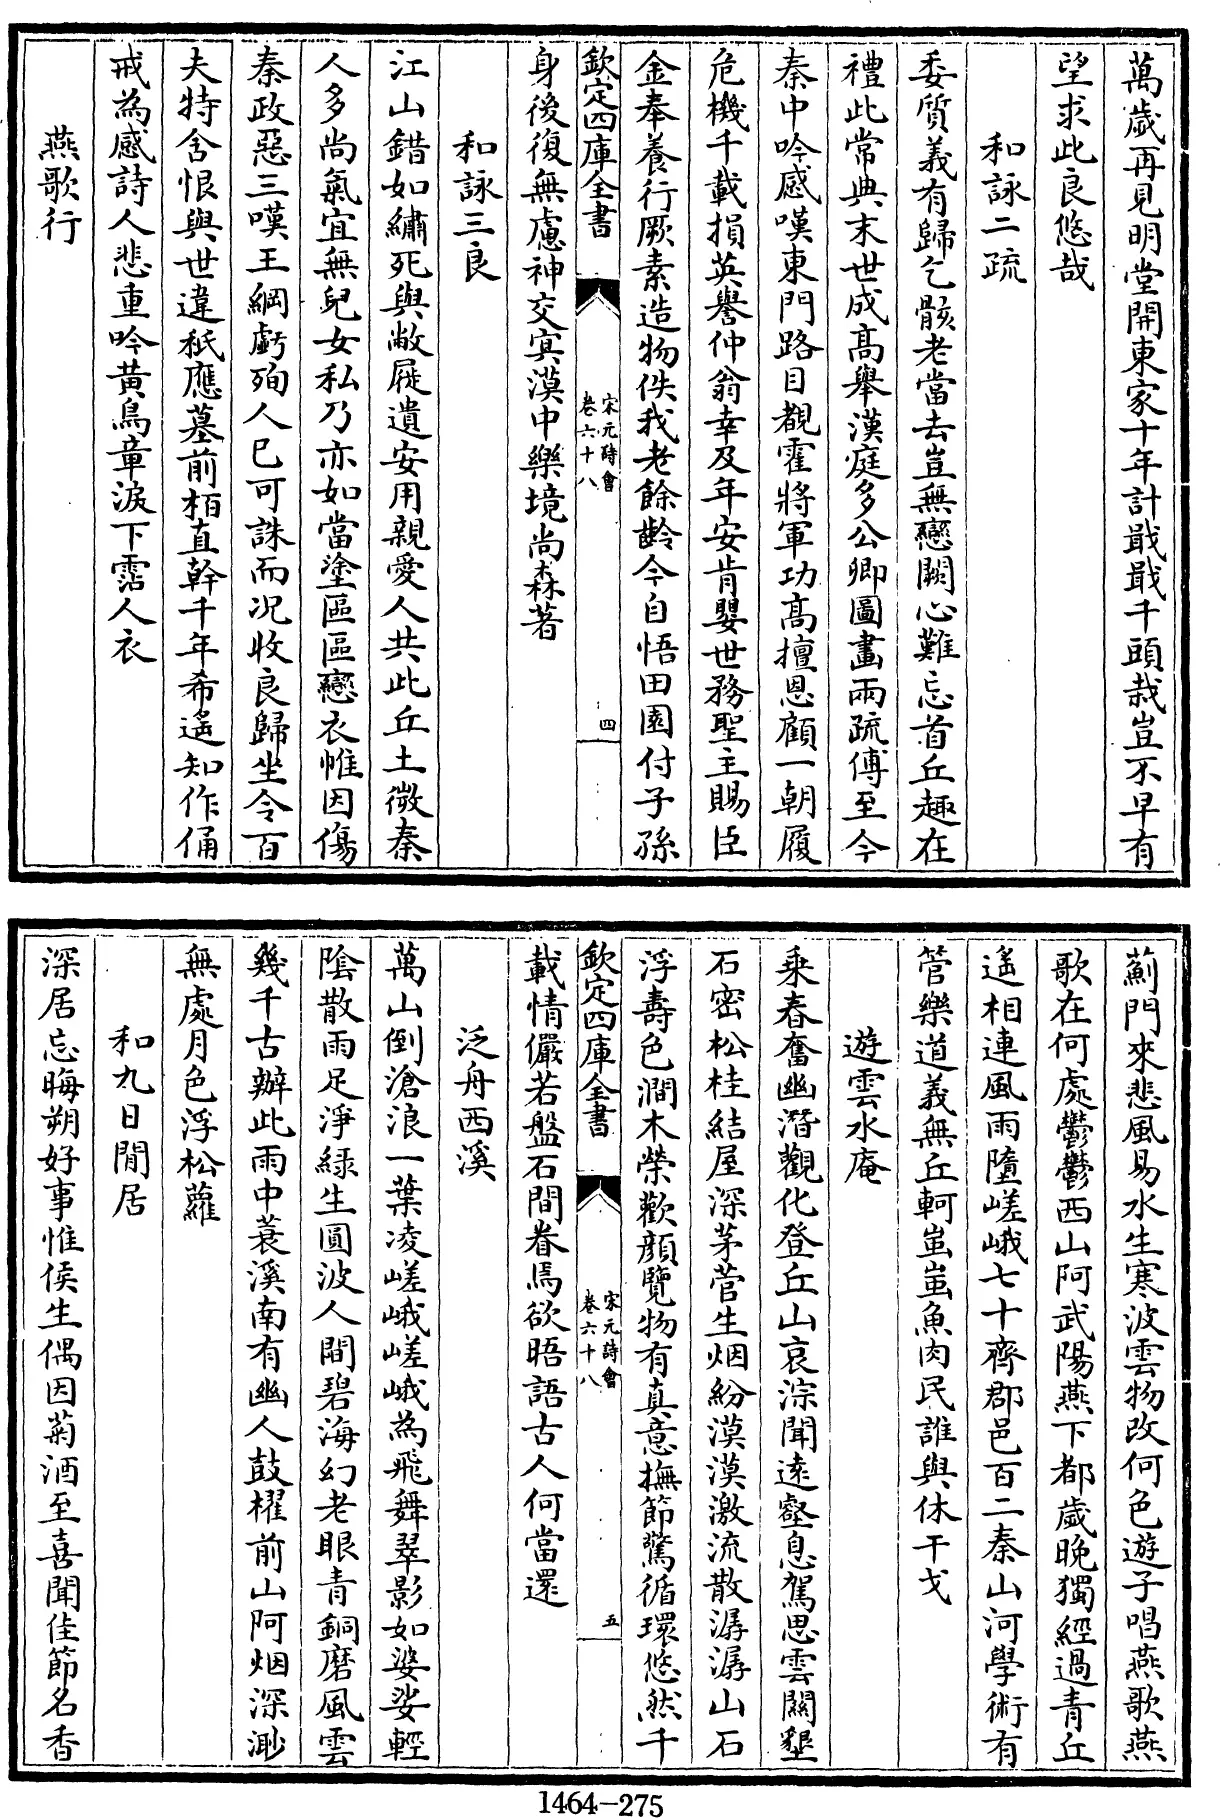 萬歲再見明堂開東家十年計戢戢千頭栽豈不早有
望求此良悠哉
和詠二疏
委質義有歸乞骸老當去豈無戀闕心難忘首丘趣在
禮此常典末世成高舉漢庭多公卿圖畫兩疏傅至今
秦中吟感嘆東門路目覩霍將軍功高擅恩顧一朝履
危機千載損英譽仲翁幸及年安肯嬰世務聖主賜臣
金奉養行厥素造物佚我老餘齡今自悟田園付子孫
欽定四庫全書
宋元詩會
卷六十八
四
身後復無慮神交寞漠中樂境尚森著
和詠三良
江山錯如繡死與敝屣遺安用親愛人共此丘土微秦
人多尚氣宜無兒女私乃亦如當塗區區戀衣帷因傷
秦政惡三嘆王綱虧殉人已可誅而況收良歸坐令百
夫特含恨與世違秪應墓前栢直幹千年希遙知作俑
戒為感詩人悲重吟黃鳥章淚下霑人衣
燕歌行
薊門來悲風易水生寒波雲物改何色遊子唱燕歌燕
歌在何處鬱鬱西山阿武陽燕下都歲晚獨經過青丘
遙相連風雨隳嵯峨七十齊郡邑百二秦山河學術有
管樂道義無丘軻蚩蚩魚肉民誰與休干戈
遊雲水庵
乘春奮幽潛觀化登丘山哀淙聞遠壑息駕思雲關墾
石密松桂結屋深茅菅生烟紛漠漠激流散潺潺山石
浮壽色澗木榮歡顏覽物有真意撫節驚循環悠然千
欽定四庫全書
宋元詩會
卷六十八
五
載情儼若盤石間眷焉欲晤語古人何當還
泛舟西溪
萬山倒滄浪一葉凌嵯峨嵯峨為飛舞翠影如婆娑輕
陰散雨足淨綠生圓波人間碧海幻老眼青銅磨風雲
幾千古辦此雨中蓑溪南有幽人鼓櫂前山阿烟深渺
無處月色浮松蘿
和九日閒居
深居忘晦朔好事惟侯生偶因菊酒至喜聞佳節名香
1464-275